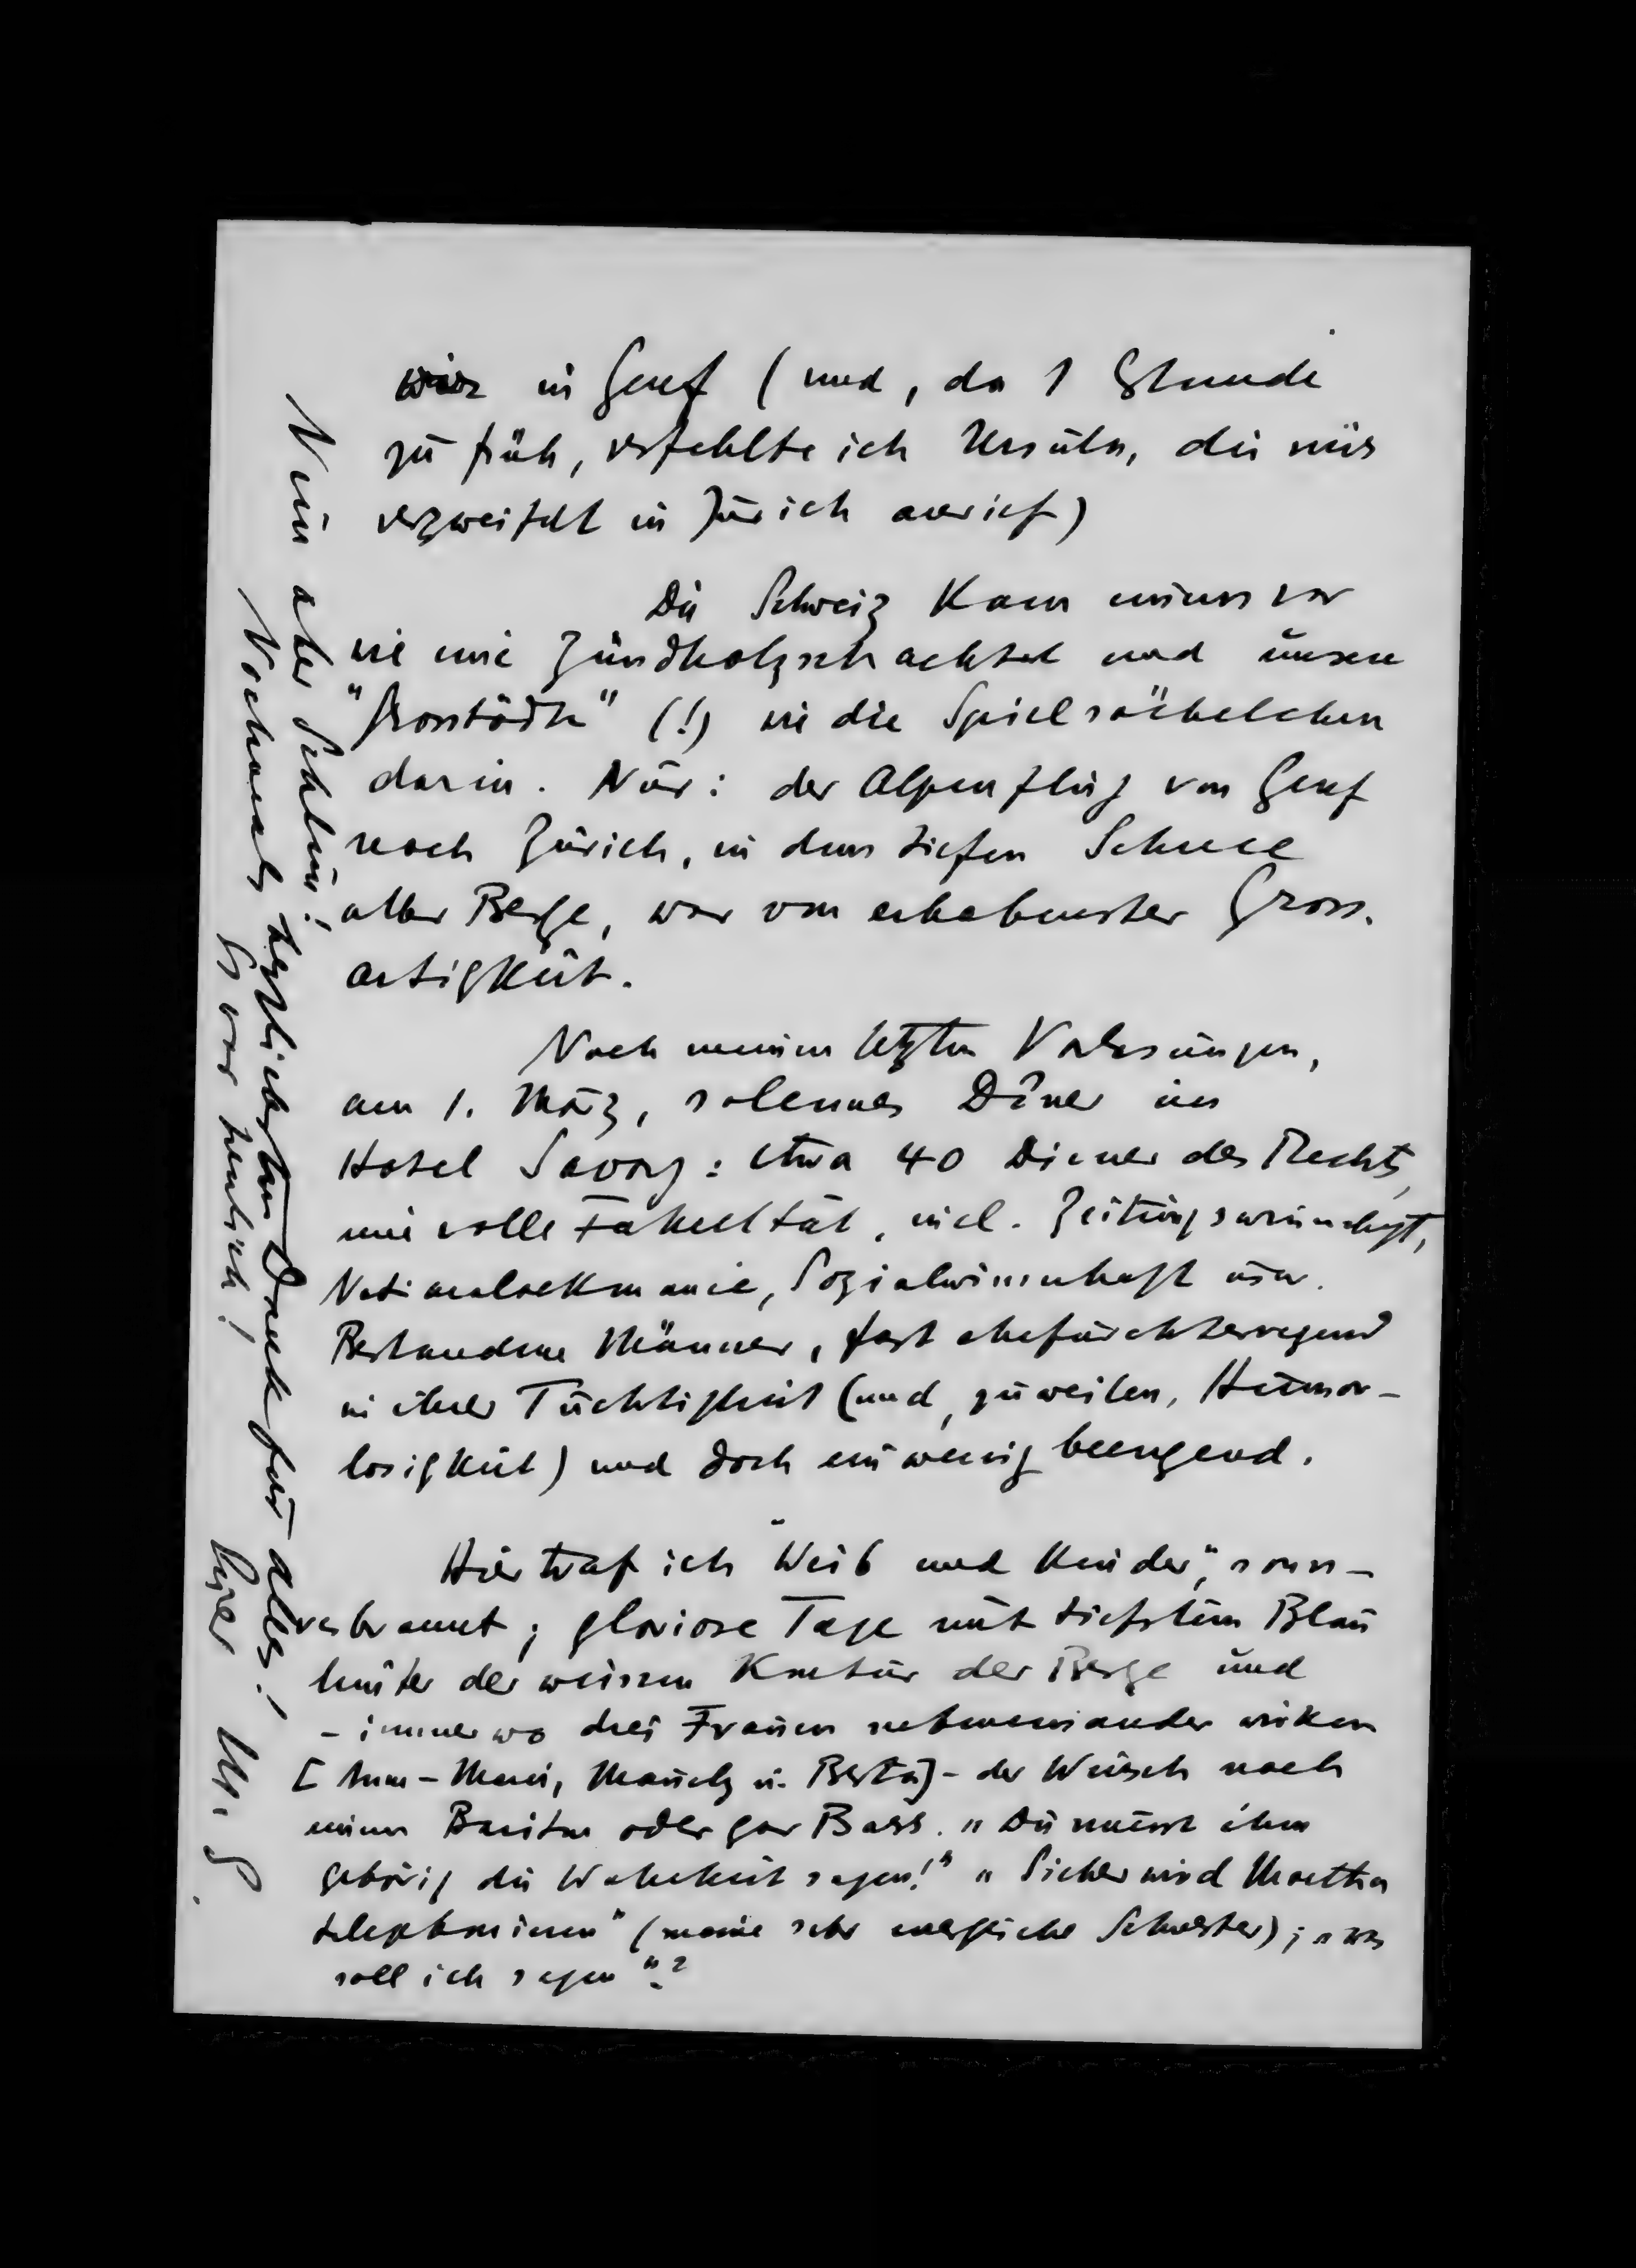 wir in Genf (und, da 1 Stunde
zu früh, verfehlte ich Ursula, die mir
verzweifelt in Zürich anrief)
Die Schweiz kam einem vor
wie eine Zündholzschachtel und unsere
"Grosstädte" (!) wie die Spielsächelchen
darin. Nur: der Alpenflug von Genf
nach Zürich, in dem tiefen Schnee
aller Berge, war von erhabenster Gross-
artigkeit.
Nach meinen letzten Vorlesungen,
am 1. März, solennes Dîner im
Hotel Savoy: etwa 40 Diener des Rechts,
eine volle Fakultät, incl. Zeitungswissenschaft,
Nationaloekonomie, Sozialwissenschaft usw.
Bestandene Männer, fast ehrfurchterregend
in ihrer Tüchtigkeit (und, zuweilen, Humor-
losigkeit) und doch ein wenig beengend.
Hier traf ich "Weib und Kinder", sonn-
verbrannt; gloriose Tage mit tiefstem Blau
hinter der weissen Kontur der Berge und
- immer wo drei Frauen nebeneinander wirken
[Anne-Marie, Mausly u. Berta] - der Wunsch nach
einem Bariton oder gar Bass. "Du musst ihm
gehörig die Wahrheit sagen!" "Sicher wird Martha
telephonieren" (meine sehr energische Schwester); "was
soll ich sagen"?
Nun aber Schluss!
Nochmals herzlichsten Dank für alles!
Es war herrlich!
Ihr